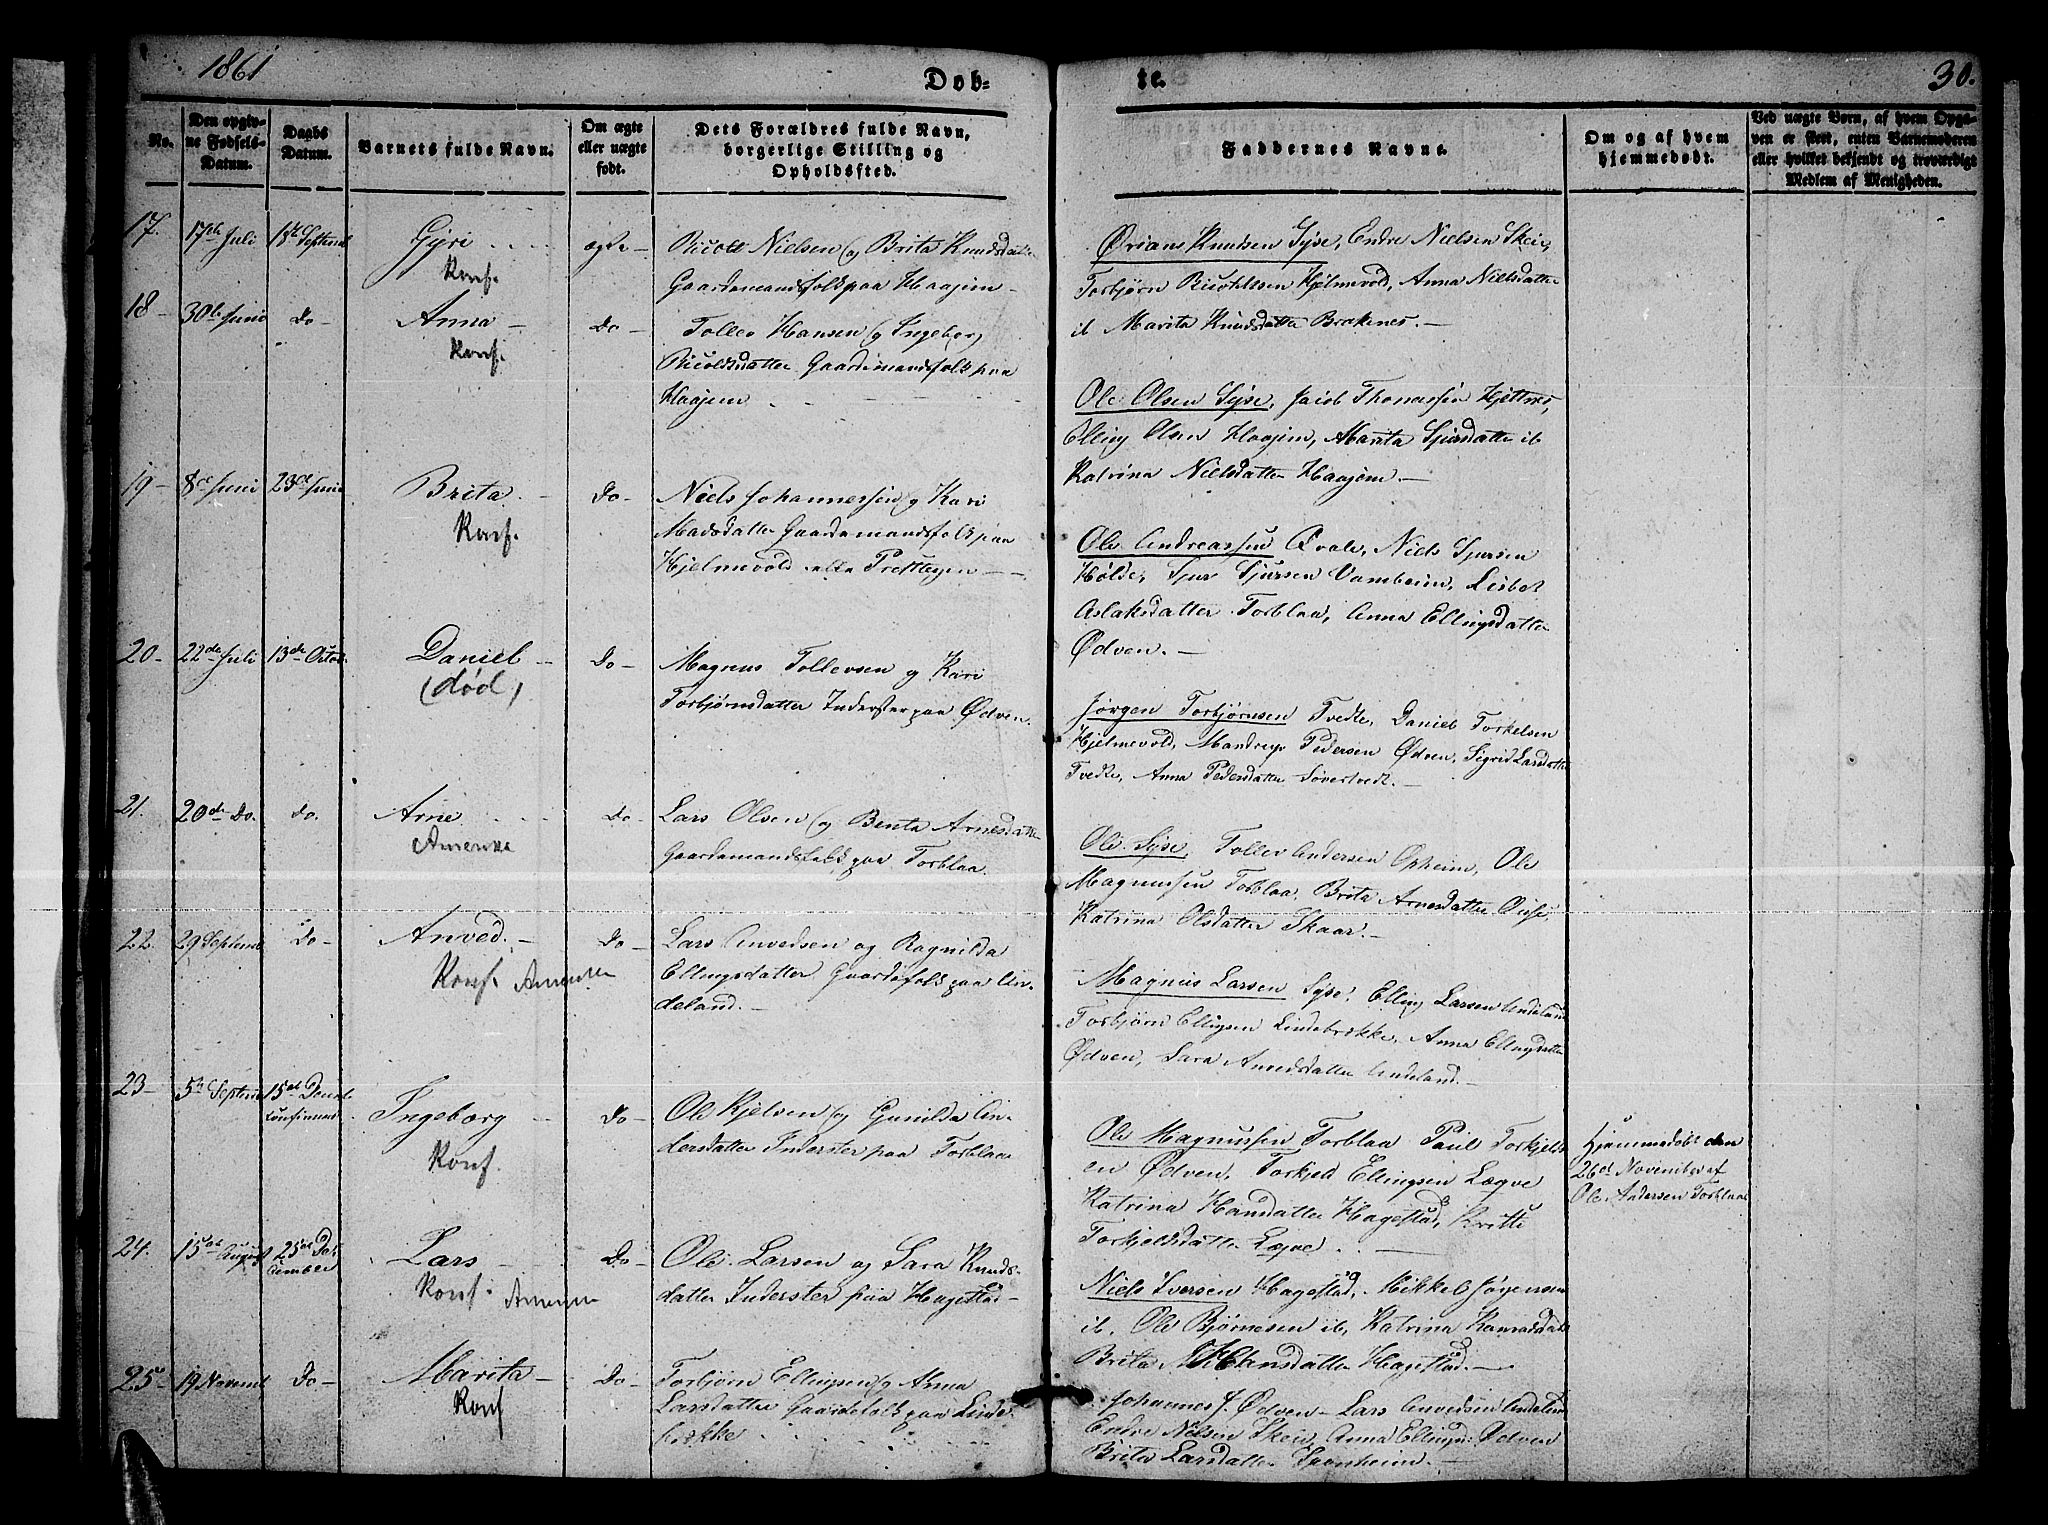 1861
Dob=
te.
30.
No.
Den opgiv-
ne Fødsels-
Datum.
Daabs
Datum.
Barnets fulde Navn.
Om ægte
eller uægte
født.
Dets Forældres fulde Navn,
borgerlige Stilling og
Opholdssted.
Faddernes Navne.
Om og af hvem
hjemmedøbt.
Ved uægte Børn, af hvem Opga-
ven er skeet, enten Barnemoderen
eller hvilket bekjendt og troværdigt
Medlem af Menigheden.
17. 17de Juli Gyri ægte
Konf.
Nielsen og Brita Knudsdatter
Gaardsmandsfolk paa Haajem
Knudsen Syse, Endre Nielsen Skeie,
Torbjørn Hjelmevold, Anna Nielsdatter
ib Marita Knudsdatter Brakenes.
18 30te Juni Do Anna Do
Konf.
Tollev Hansen og Ingeborg
Gaardsmandsfolk paa
Haajem
Ole Olsen Syse, Jacob Thomassen
Elling Olsen Haajem, Marita Sjursdatter ib
Katrina Nielsdatter Haajem
19 8de Juni 23de Juni Brita Do
Konf.
Niels Johannessen og Kari
Madsdatter Gaardsmandsfolk paa
Hjelmevold
Ole Andreassen Qvale, Niels Sjursen
Sjur Sjursen Vambeim, Lisbet
Aslaksdatter Torblaa, Anna Ellingsdatter
Ødven.
20 22de Juli 13de Octob Daniel Do
(død)
Magnus Tollevsen og Kari
Torbjørnsdatter Inderster paa Ødven.
Jørgen Torbjørnsen Tvedte, Daniel Torkelsen
Hjelmevold, Mandrup Pedersen Ødven, Sigrid Larsdatter
Tvedte, Anna Pedersdatter
21. 20de Do. Do. Arne Do
Amerika
Lars Olsen og Benta Arnesdatter
Gaardsmandsfolk paa Torblaa.
Ole Syse, Tollev Andersen Opheim, Ole
Magnussen Torblaa, Brita Arnesdatter
Katrina Olsdatter Skaar.
22. 29 Septemb Do Anved. Do
Konf. Amerika
Lars Anvedsen og Ragnilda
Ellingsdatter Gaardsfolk paa An-
deland.
Magnus Larsen Syse, Elling Larsen Andeland
Torbjørn Ellingsen Lindebrække, Anna Ellingsdatter
Ødven, Sara Anvedsdatter Andeland.
23 5te Septemb 15de Ingeborg Do
Konf.
Ole Kjelsen og Gunilda An-
dersdatter Inderster paa Torblaa
Ole Magnussen Torblaa Paul Torkjels-
en Ødven, Torkjel Ellingsen Lægve
Katrina Hansdatter Hagestad,
Torkjelsdatter Lægve
Hjemmedøbt den
26de November af
Ole Andersen Torblaa
24. 15de August 25de De-
cember Lars Do
Konf. Amerika
Ole Larsen og Sara Knuds-
datter Inderster paa Hagestad
Niels Iversen Hagestad, Mikkel Jørgensen
ib. Ole Bjørnesen ib, Katrina
Brita Hansdatter Hagestad.
25 19 Novemb Do Marita Do
Konf
Torbjørn Ellingsen og Anna
Larsdatter Gaardsfolk paa Linde-
brække
Johannes J. Ødven Lars Anvedsen Andeland
Endre Nielsen Skeie, Anna Ellingsd: Ødven
Brita Larsdatter Sponheim.